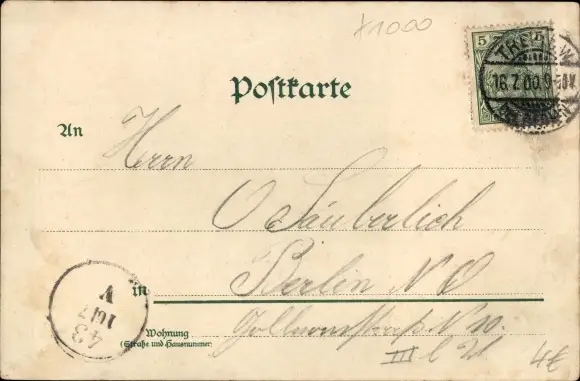 x1000
5
TREPTOW
16.7.00.9-10V.
Postkarte
An
Herrn
O Säuberlich
in Berlin N O
Wohnung
(Straße und Hausnummer)
N 10.
III l 21
4€
43
16/7
V